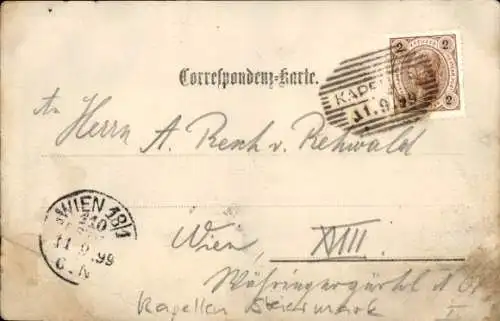 Correspondenz-Karte.
2 2
KAPEL
11.9.99
2 2
An Herrn A. Resch v. Rehwald
WIEN 18/1
11.9.99
6.N
Wien, XVIII.
Währingergürtel
Kapellen Steiermark